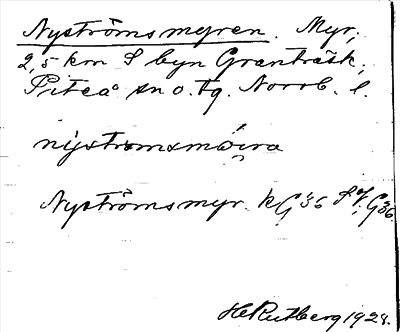 Nyströmsmyren. Myr,
2,5 km S byn Granträsk,
Piteå sn o. tg. Norrb. l.
nyströmsmöira
Nyströmsmyr. kG36 SV G36
H Rutberg 1928.